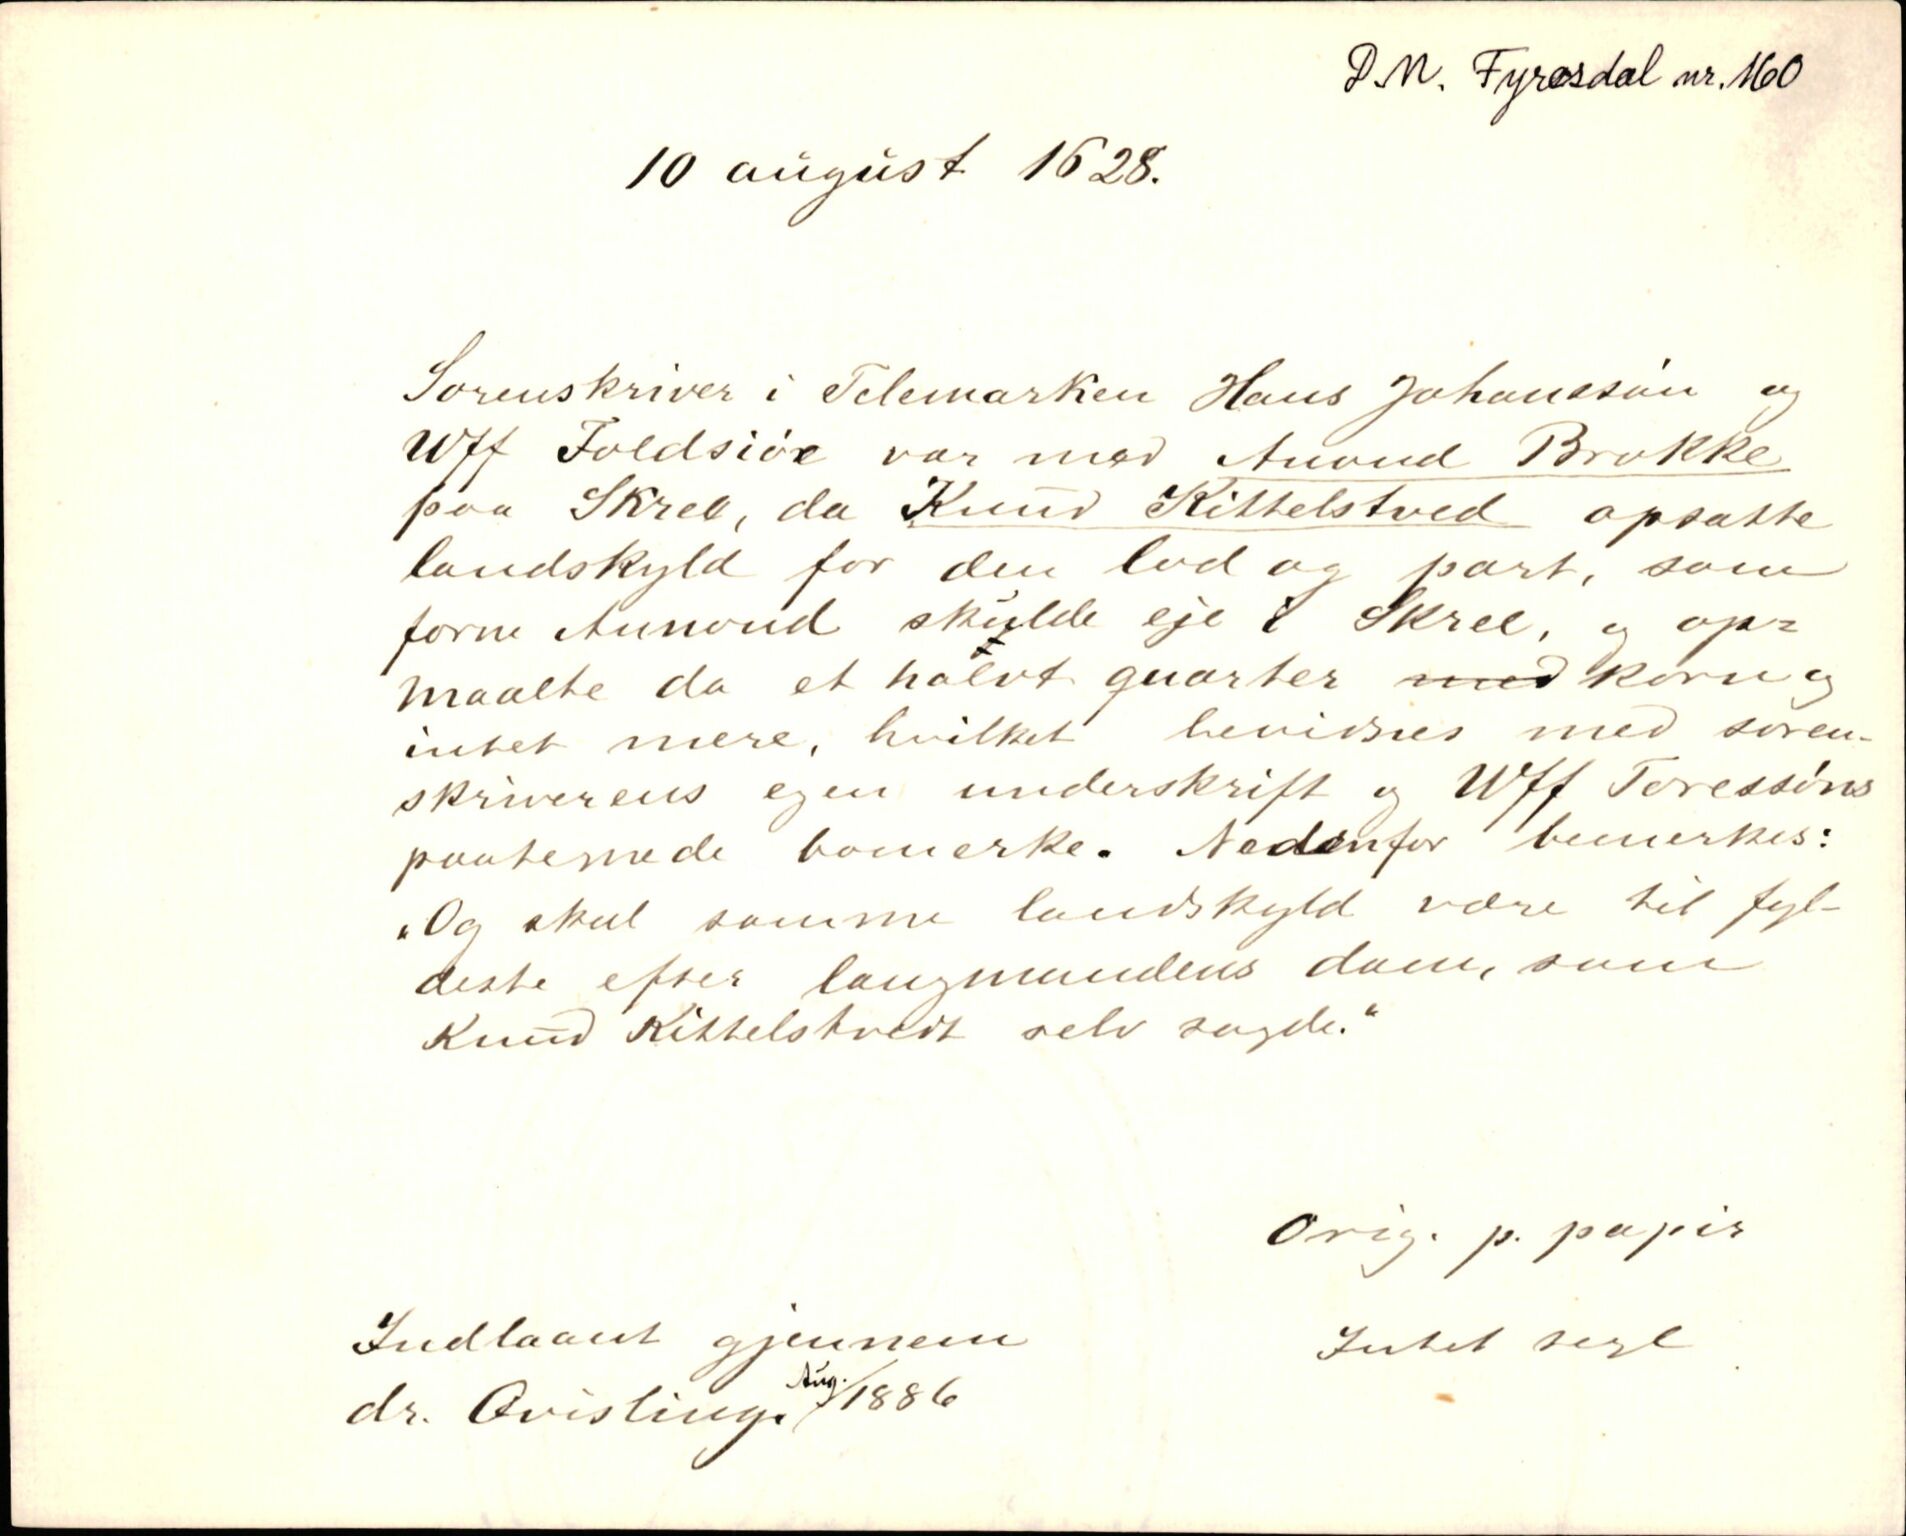 D.N. Fyresdal nr. 160
10 august 1628.
Sorenskriver i Telemarken Hans Johanssön og
Wff Foldsiöe var med Anond Brokke
paa Skree, da Knud Kittelstved opsatte
landskyld for den lod og part, som
forne Aunond skulde eje i Skree, og op=
maalte da et halvt quarter korn og
intet mere, hvilket bevidnes med soren-
skriverens egen underskrift og Wff Toressöns
paategnede bomerke. Nedenfor bemerkes:
"Og skal samme landskyld være til fyl-
deste efter laugmandens dom, som
Knud Kittelstvedt selv sagde."
Orig. p. papir
Indlaant gjennem
Intet segl
dr. Qvisling. Aug./1886